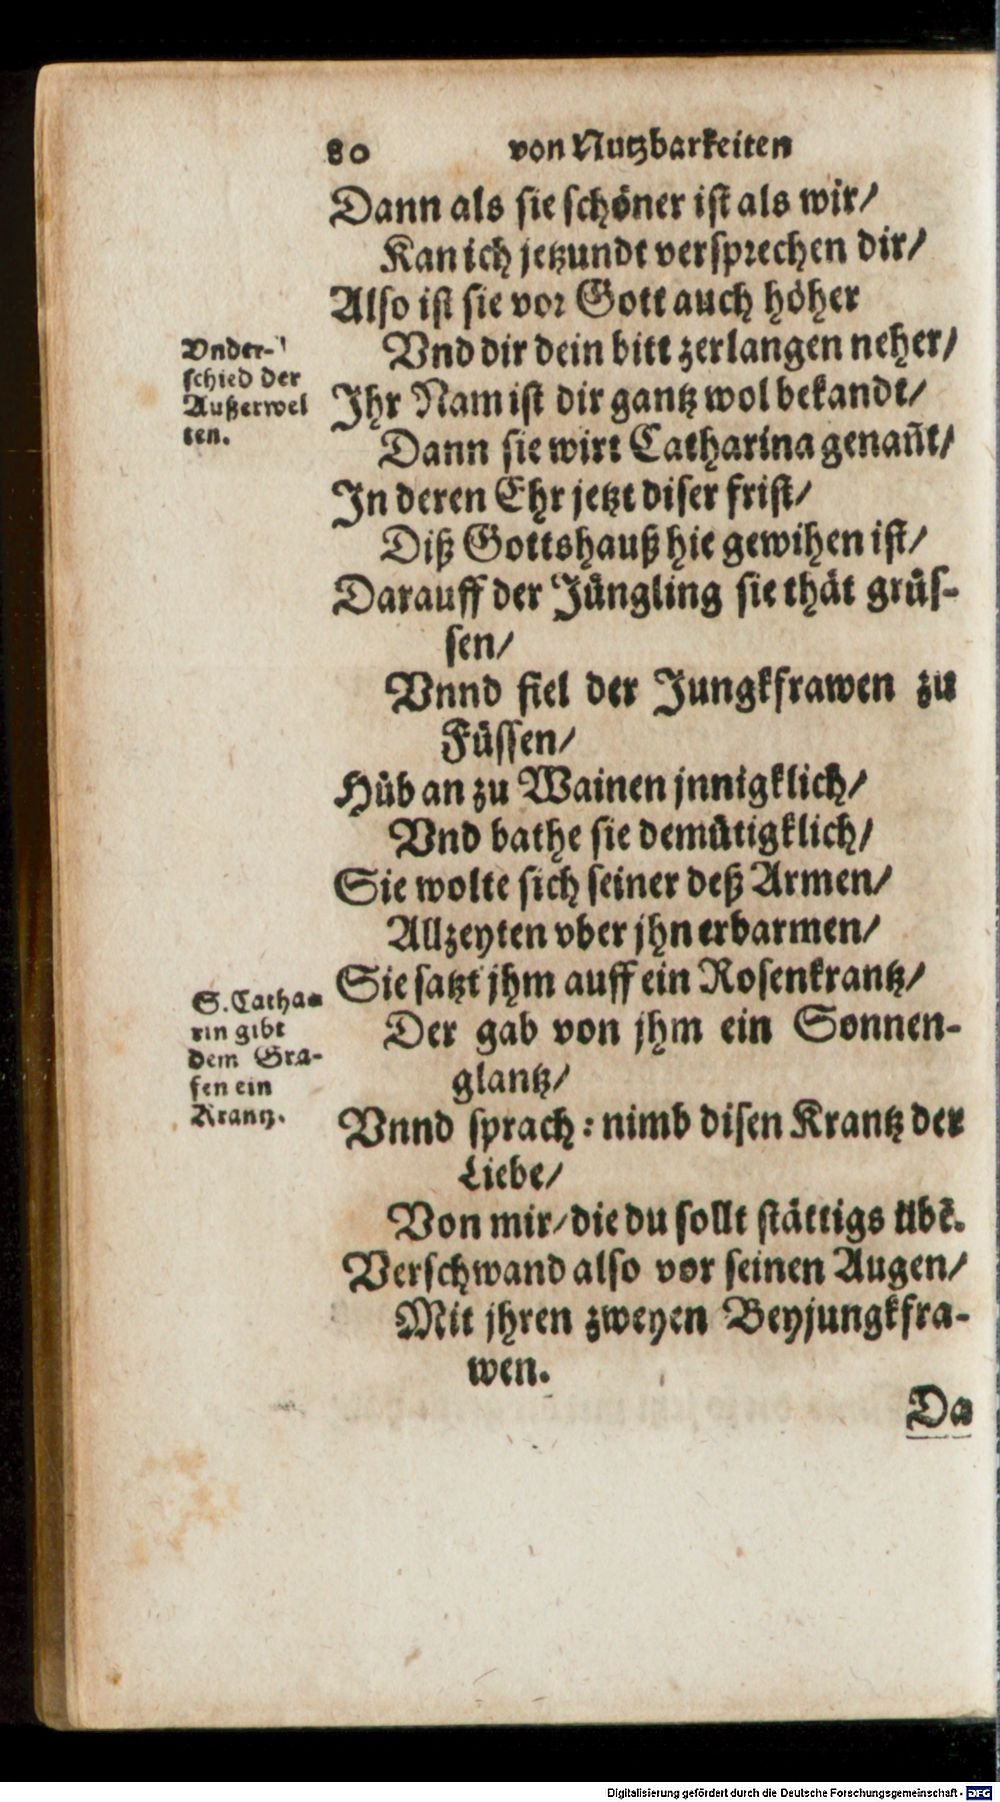 80 von Nutzbarkeiten
Dann als sie schöner ist als wir/
Kan ich jetzundt versprechen dir/
Also ist sie vor Gott auch höher
Vnd dir dein bitt zerlangen neher/
Vnder-
schied der
Außerwel
ten.
Ihr Nam ist dir gantz wol bekandt/
Dann sie wirt Catharina genañt/
In deren Ehr jetzt diser frist/
Diß Gottshauß hie gewihen ist/
Darauff der Jüngling sie thät grüs-
sen/
Vnnd fiel der Jungkfrawen zu
Füssen/
Hüb an zu Wainen jnnigklich/
Vnd bathe sie demütigklich/
Sie wolte sich seiner deß Armen/
Allzeyten vber jhn erbarmen/
Sie satzt jhm auff ein Rosenkrantz/
S. Catha-
rin gibt
dem Gra-
fen ein
Krantz.
Der gab von jhm ein Sonnen-
glantz/
Vnnd sprach: nimb disen Krantz der
Liebe/
Von mir/ die du sollt stättigs übē.
Verschwand also vor seinen Augen/
Mit jhren zweyen Beyjungkfra-
wen.
Da
Digitalisierung gefördert durch die Deutsche Forschungsgemeinschaft - DFG